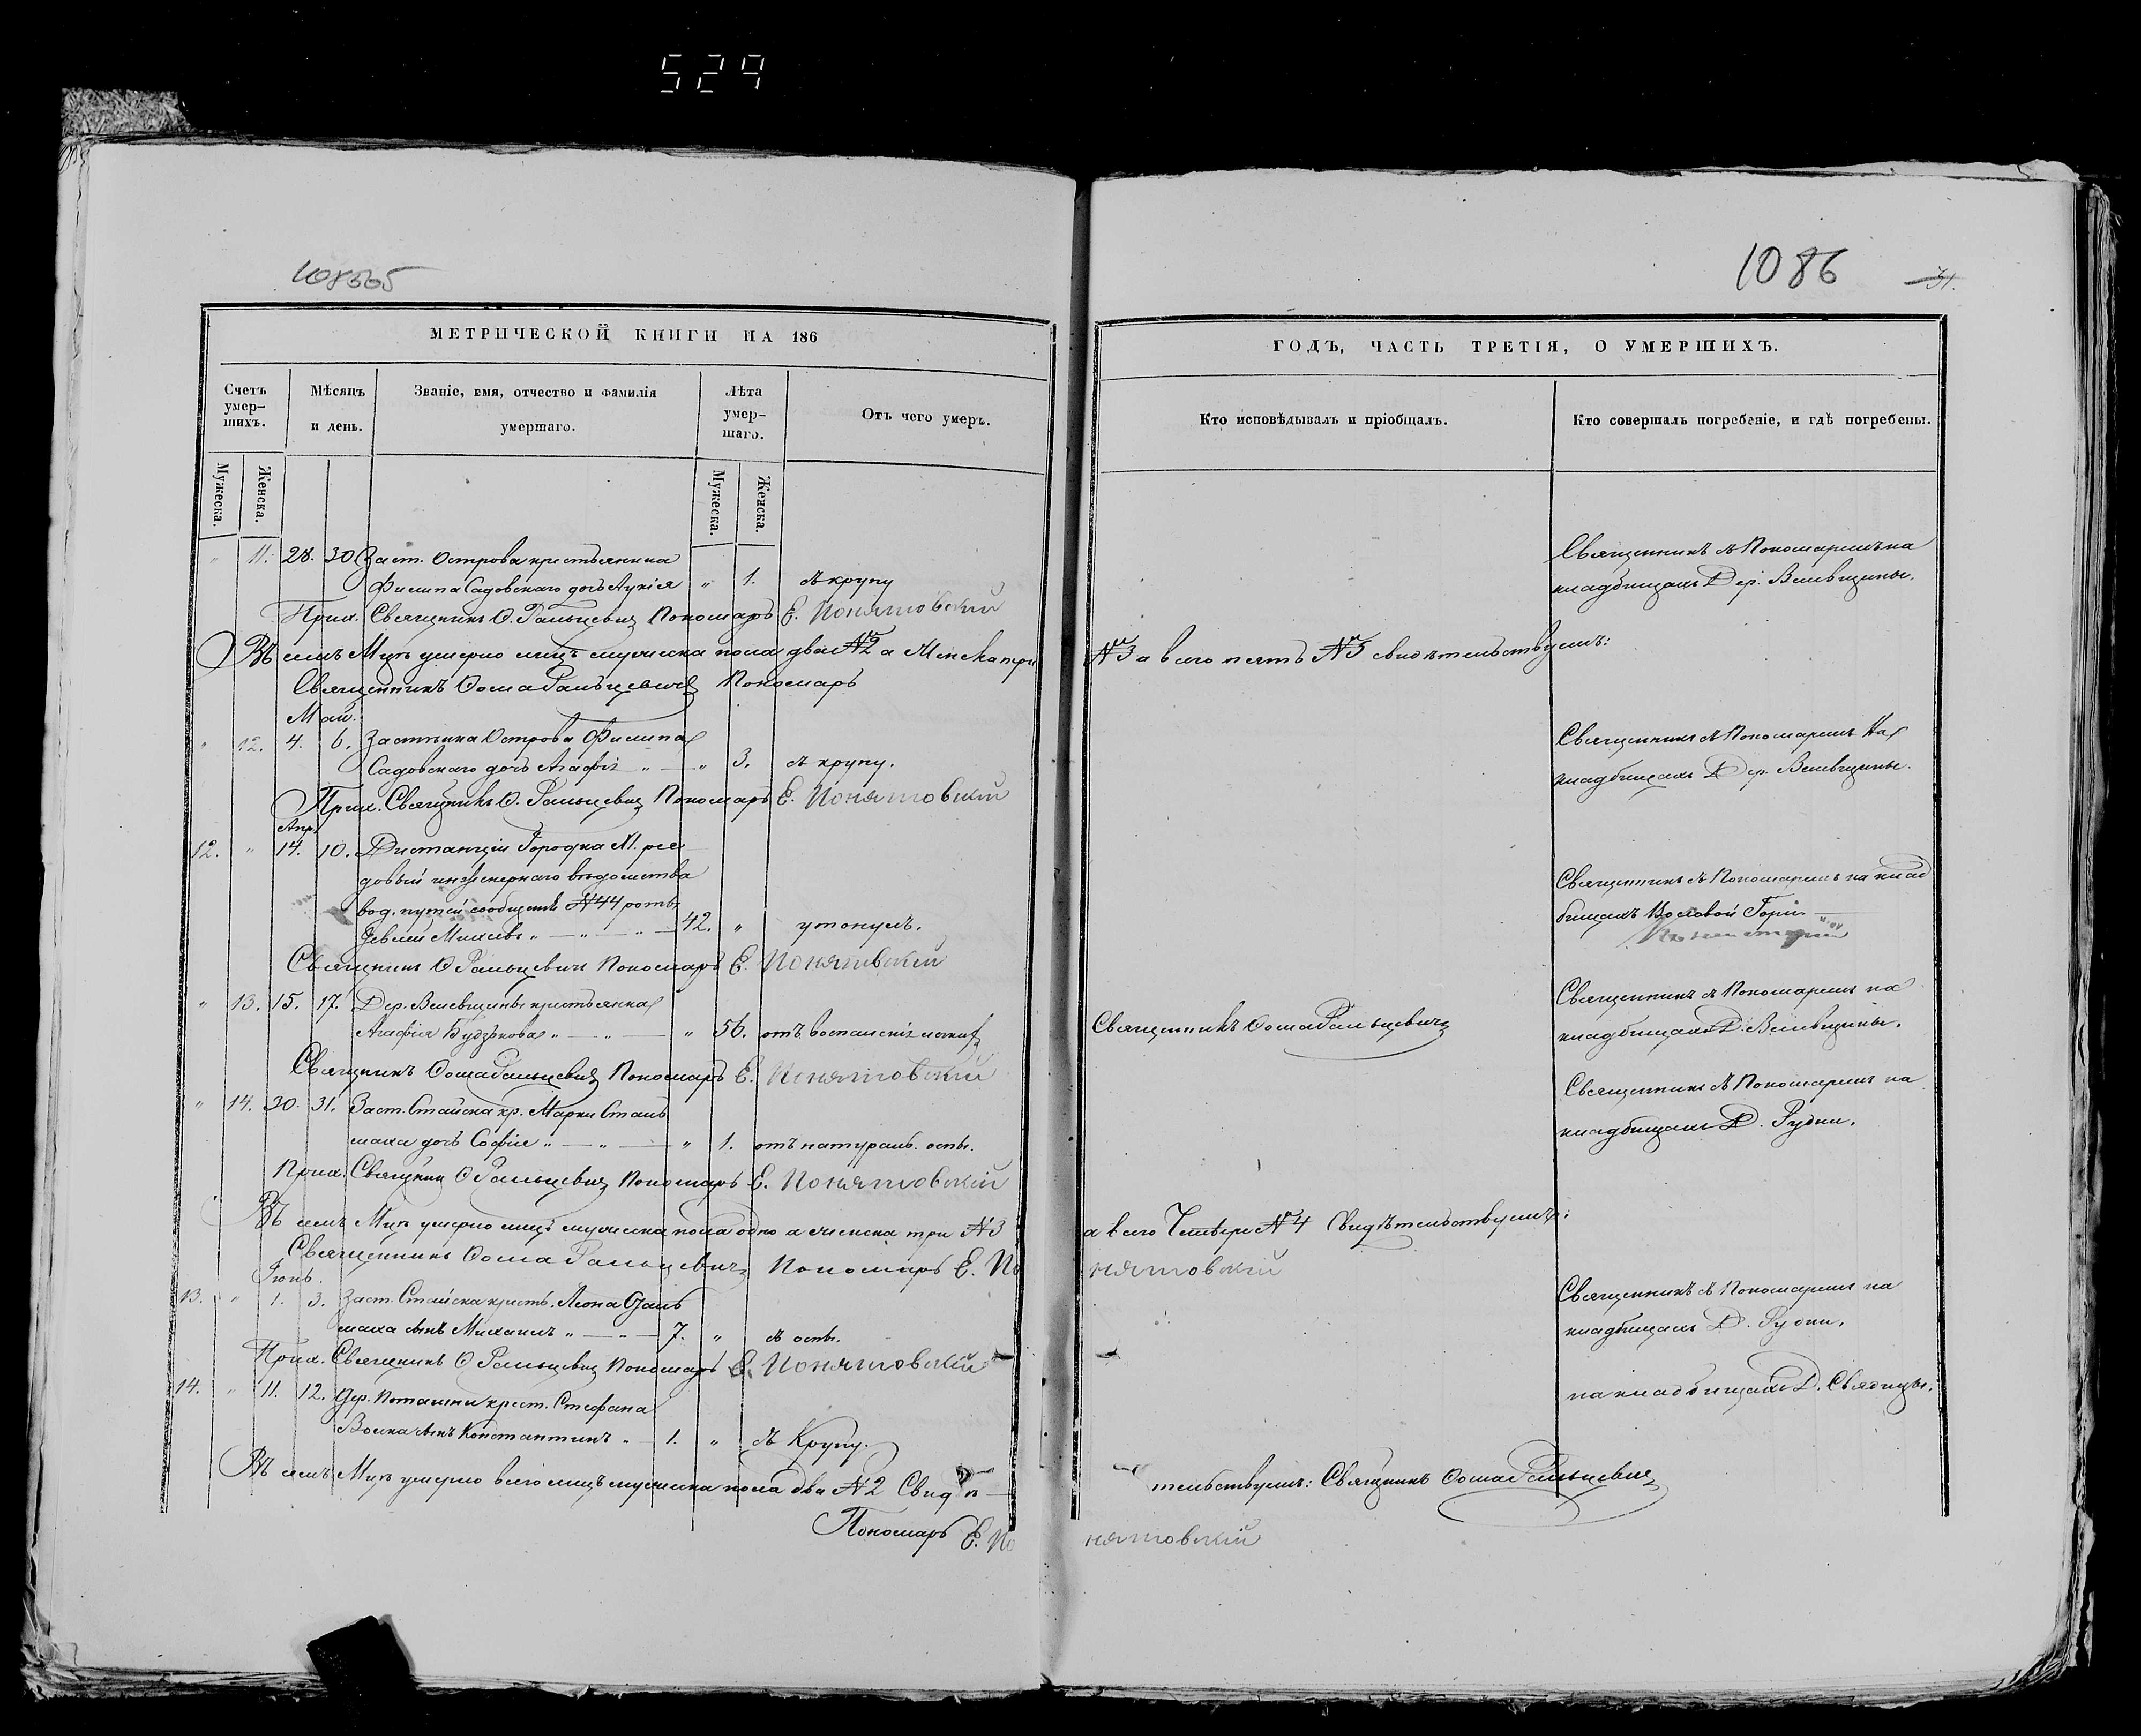 529
1086
31.
МЕТРИЧЕСКОЙ КНИГИ НА 186
Счетъ умер-шихъ.
Мѣсяцъ и день.
Званіе, имя, отчество и фамилія умершаго.
Лѣта умер-шаго.
Отъ чего умеръ.
Мужеска.
Женска.
Мужеска.
Женска.
" 11. 28. 30 Заст. Острова крестьянина
Филипа Садовскаго дочь " 1. ъ крупу
Прих. Священникъ Ѳ. Ральцевичъ Пономарь Е. Понятовскій
Въ семъ Мцѣ умерло лицъ мужеска пола два №2 а Женска три
Священникъ Ѳома Ральцевичъ Пономарь
Май.
" 12. 4. 6. Застѣнка Острова Филипа
Садовскаго дочь Агафія " — " 3. ъ крупу.
Прих. Священникъ Ѳ. Ральцевичъ Пономарь Е. Понятовскій
Апр.
12. " 14. 10. Дистанціи Городка М. ря
довый инженернаго вѣдомства
вод. путей сообщенія №44 роты
42. " утонулъ.
Священникъ Ѳ Ральцевичъ Пономарь Е. Понятовскій
" 13. 15. 17. Дер. Велевщины крестьянка
Агафія " — " — " 56. отъ воспаленія
Священникъ Ѳома Ральцевичъ Пономарь Е. Понятовскій
" 14. 30. 31. Заст. Стайска кр. Марки Сталь
маха дочь Софія " — " — " 1. отъ натураль. оспы.
Прих. Священникъ Ѳ Ральцевичъ Пономарь Е. Понятовскій
Въ семъ Мцѣ умерло лицъ мужеска пола одно а женска три №3
Священникъ Ѳома Ральцевичъ Пономарь Е. По
Іюнь.
13. " 1. 3. Заст. Стайска крестъ. Леона Сталь
маха сынъ Михаилъ " — " — 7. " ъ оспы.
Прих. Священникъ Ѳ Ральцевичъ Пономарь Е. Понятовскій
14. " 11. 12. Дер. Поташни крест. Стефана
Волка сынъ Константинъ " — 1. " ъ Крупу.
Въ семъ Мцѣ умерло всего лицъ мужеска пола два №2 Свидѣ
Пономарь Е. По
ГОДЪ, ЧАСТЬ ТРЕТІЯ, О УМЕРШИХЪ.
Кто исповѣдывалъ и пріобщалъ.
Кто совершалъ погребеніе, и гдѣ погребены.
Священникъ съ Пономаремъ на
кладбищахъ Дер. Велевщины.
№3 а всего пять №5 свидѣтельствуемъ:
Священникъ съ Пономаремъ На
кладбищахъ Дер. Велевщины.
Священникъ съ Пономаремъ на клад
бищахъ Горы
Священникъ съ Пономаремъ на
Священникъ Ѳома Ральцевичъ
кладбищахъ Д. Велевщины.
Священникъ съ Пономаремъ на
кладбищахъ Д. Рудни.
а всего Четыре №4 Свидѣтельствуемъ:
нятовскій
Священникъ съ Пономаремъ на
кладбищахъ Д. Рудни.
на кладбищахъ Д. Свядицы.
тельствуемъ: Священникъ Ѳома Ральцевичъ
нятовскій